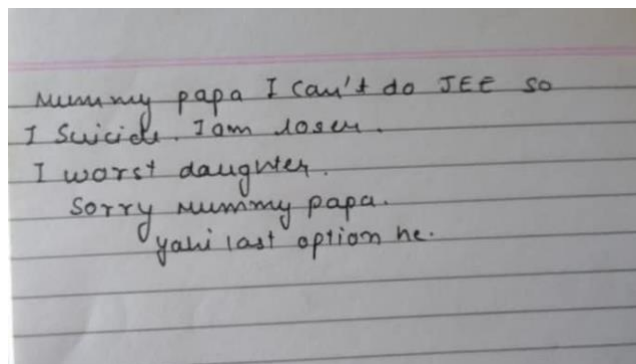 Mummy papa I can't do JEE so
I Suicide. I am loser.
I worst daughter.
Sorry Mummy papa.
yahi last option he.